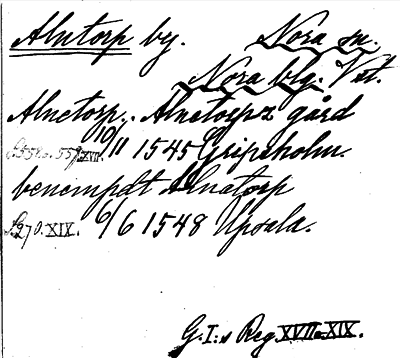 Alntorp by. Nora sn.
Nora blg. Vstm.
Alnetorp.. Alnetorpz gård
S. 558 o. 559. XVII. 10/11 1545 Gripsholm.
benempdt Alnatorp
S. 270. XIX. 6/6 1548 Upsala.
G. I:s Reg XVII o. XIX.